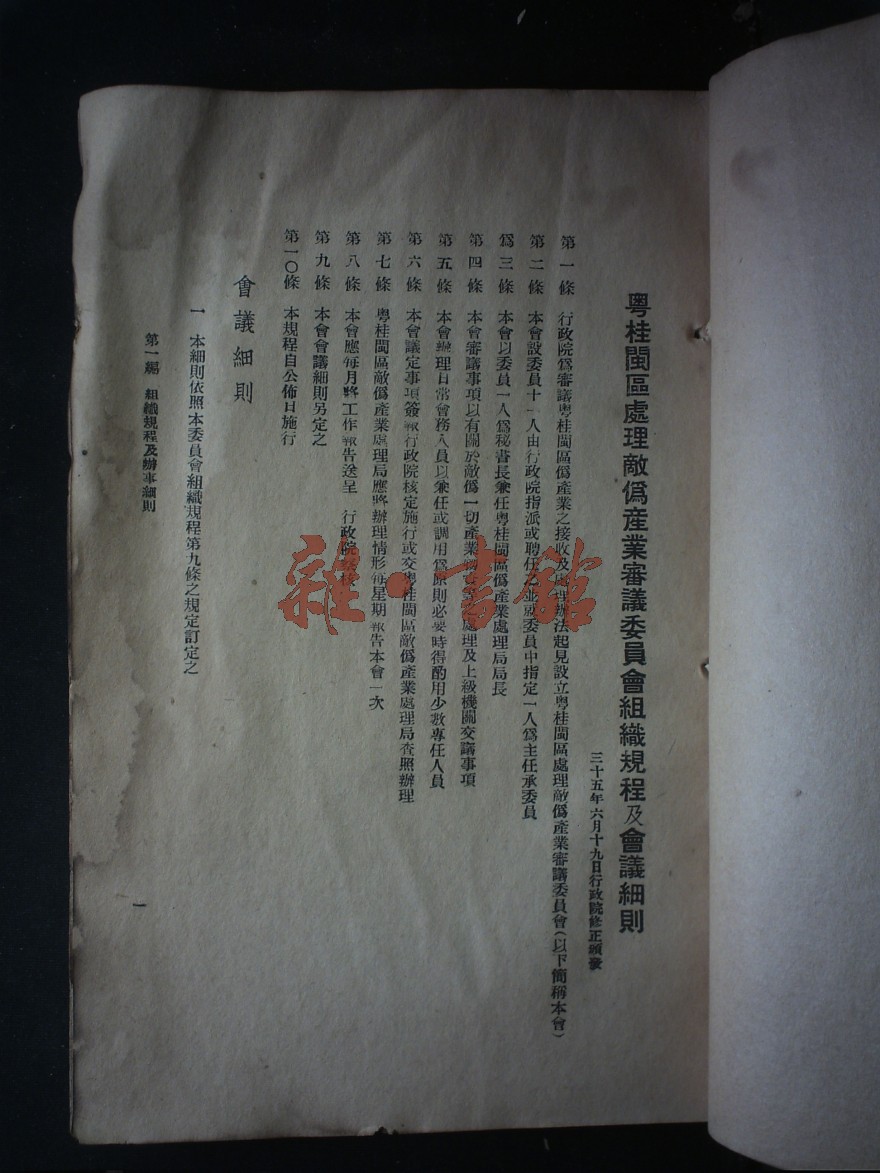 粵桂閩區處理敵僞産業審議委員會組織規程及會議細則
三十五年六月十九日行政院修正頒發
第一條 行政院爲審議粵桂閩區僞產業之接收及處理辦法起見設立粵桂閩區處理敵僞產業審議委員會(以下簡稱本會)
第二條 本會設委員十一人由行政院指派或聘任之並就委員中指定一人爲主任承委員
爲三條 本會以委員一人爲秘書長兼任粵桂閩區僞產業處理局局長
第四條 本會審議事項以有關於敵僞一切產業處理及上級機關交議事項
第五條 本會辦理日常會務人員以兼任或調用爲原則必要時得酌用少數專任人員
第六條 本會議定事項簽報行政院核定施行或交粵桂閩區敵僞產業處理局查照辦理
第七條 粵桂閩區敵僞產業處理局應將辦理情形每星期報告本會一次
第八條 本會應每月將工作報告送呈 行政院核
第九條 本會會議細則另定之
第一〇條 本規程自公佈日施行
會議細則
一 本細則依照本委員會組織規程第九條之規定訂定之
第一編 組織規程及辦事細則
一
雜·書館